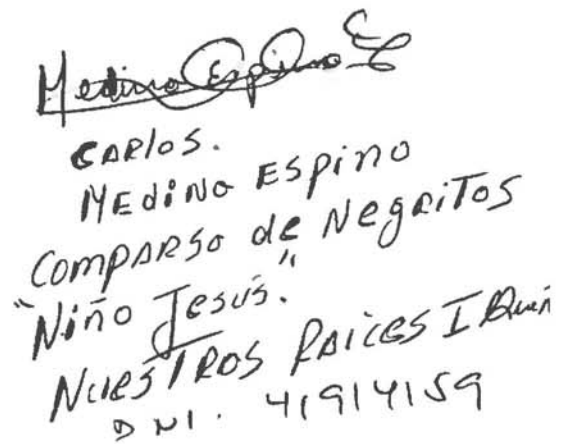 Medina Espino C
CARlos.
MEdiNa ESpiNo
COMPARSa de NegRiTos
"Niño Jesús."
NUESTROS RAices I
DNI. 41914159